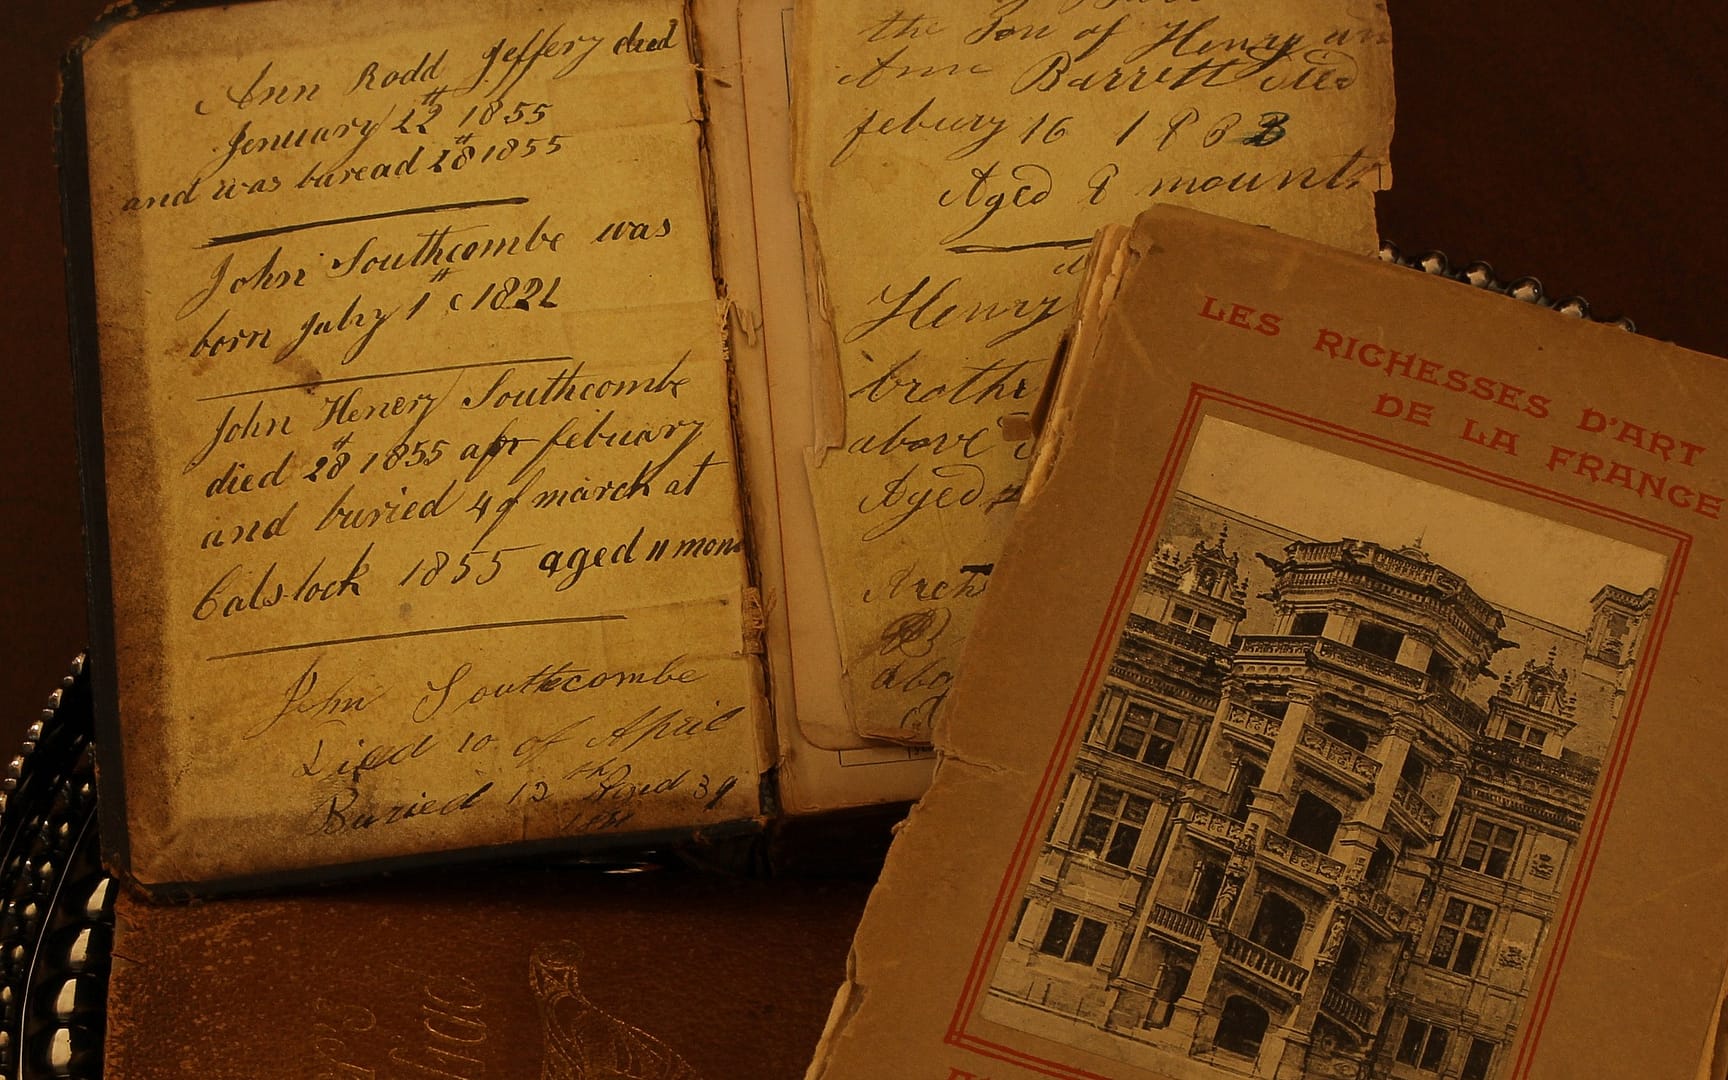 Ann Rodd Jeffery died
Jenuary 22 1855
and was buread 28 1855
John Southcombe was
born July 1 1821
John Henery Southcombe
died 28 1855 of febuary
and buried 4 of march at
Calstock 1855 aged 11 mon
John Southcombe
Died 10 of April
Buried 12th Aged 39
the Son of Henry an
Ann Barrett Died
febury 16 1863
Aged 8 mounts
Henry
brothe
above
Aged
abo
LES RICHESSES D'ART
DE LA FRANCE